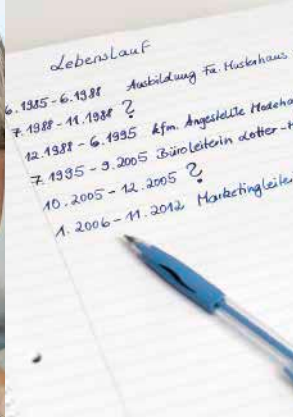 Lebenslauf
6.1985-6.1988 Ausbildung Fa. Musterhaus
7.1988-11.1988 ?
12.1988-6.1995 kfm. Angestellte Modeha
7.1995-9.2005 Büroleiterin Lotter-
10.2005-12.2005 ?
1.2006-11.2012 Marketingleiter